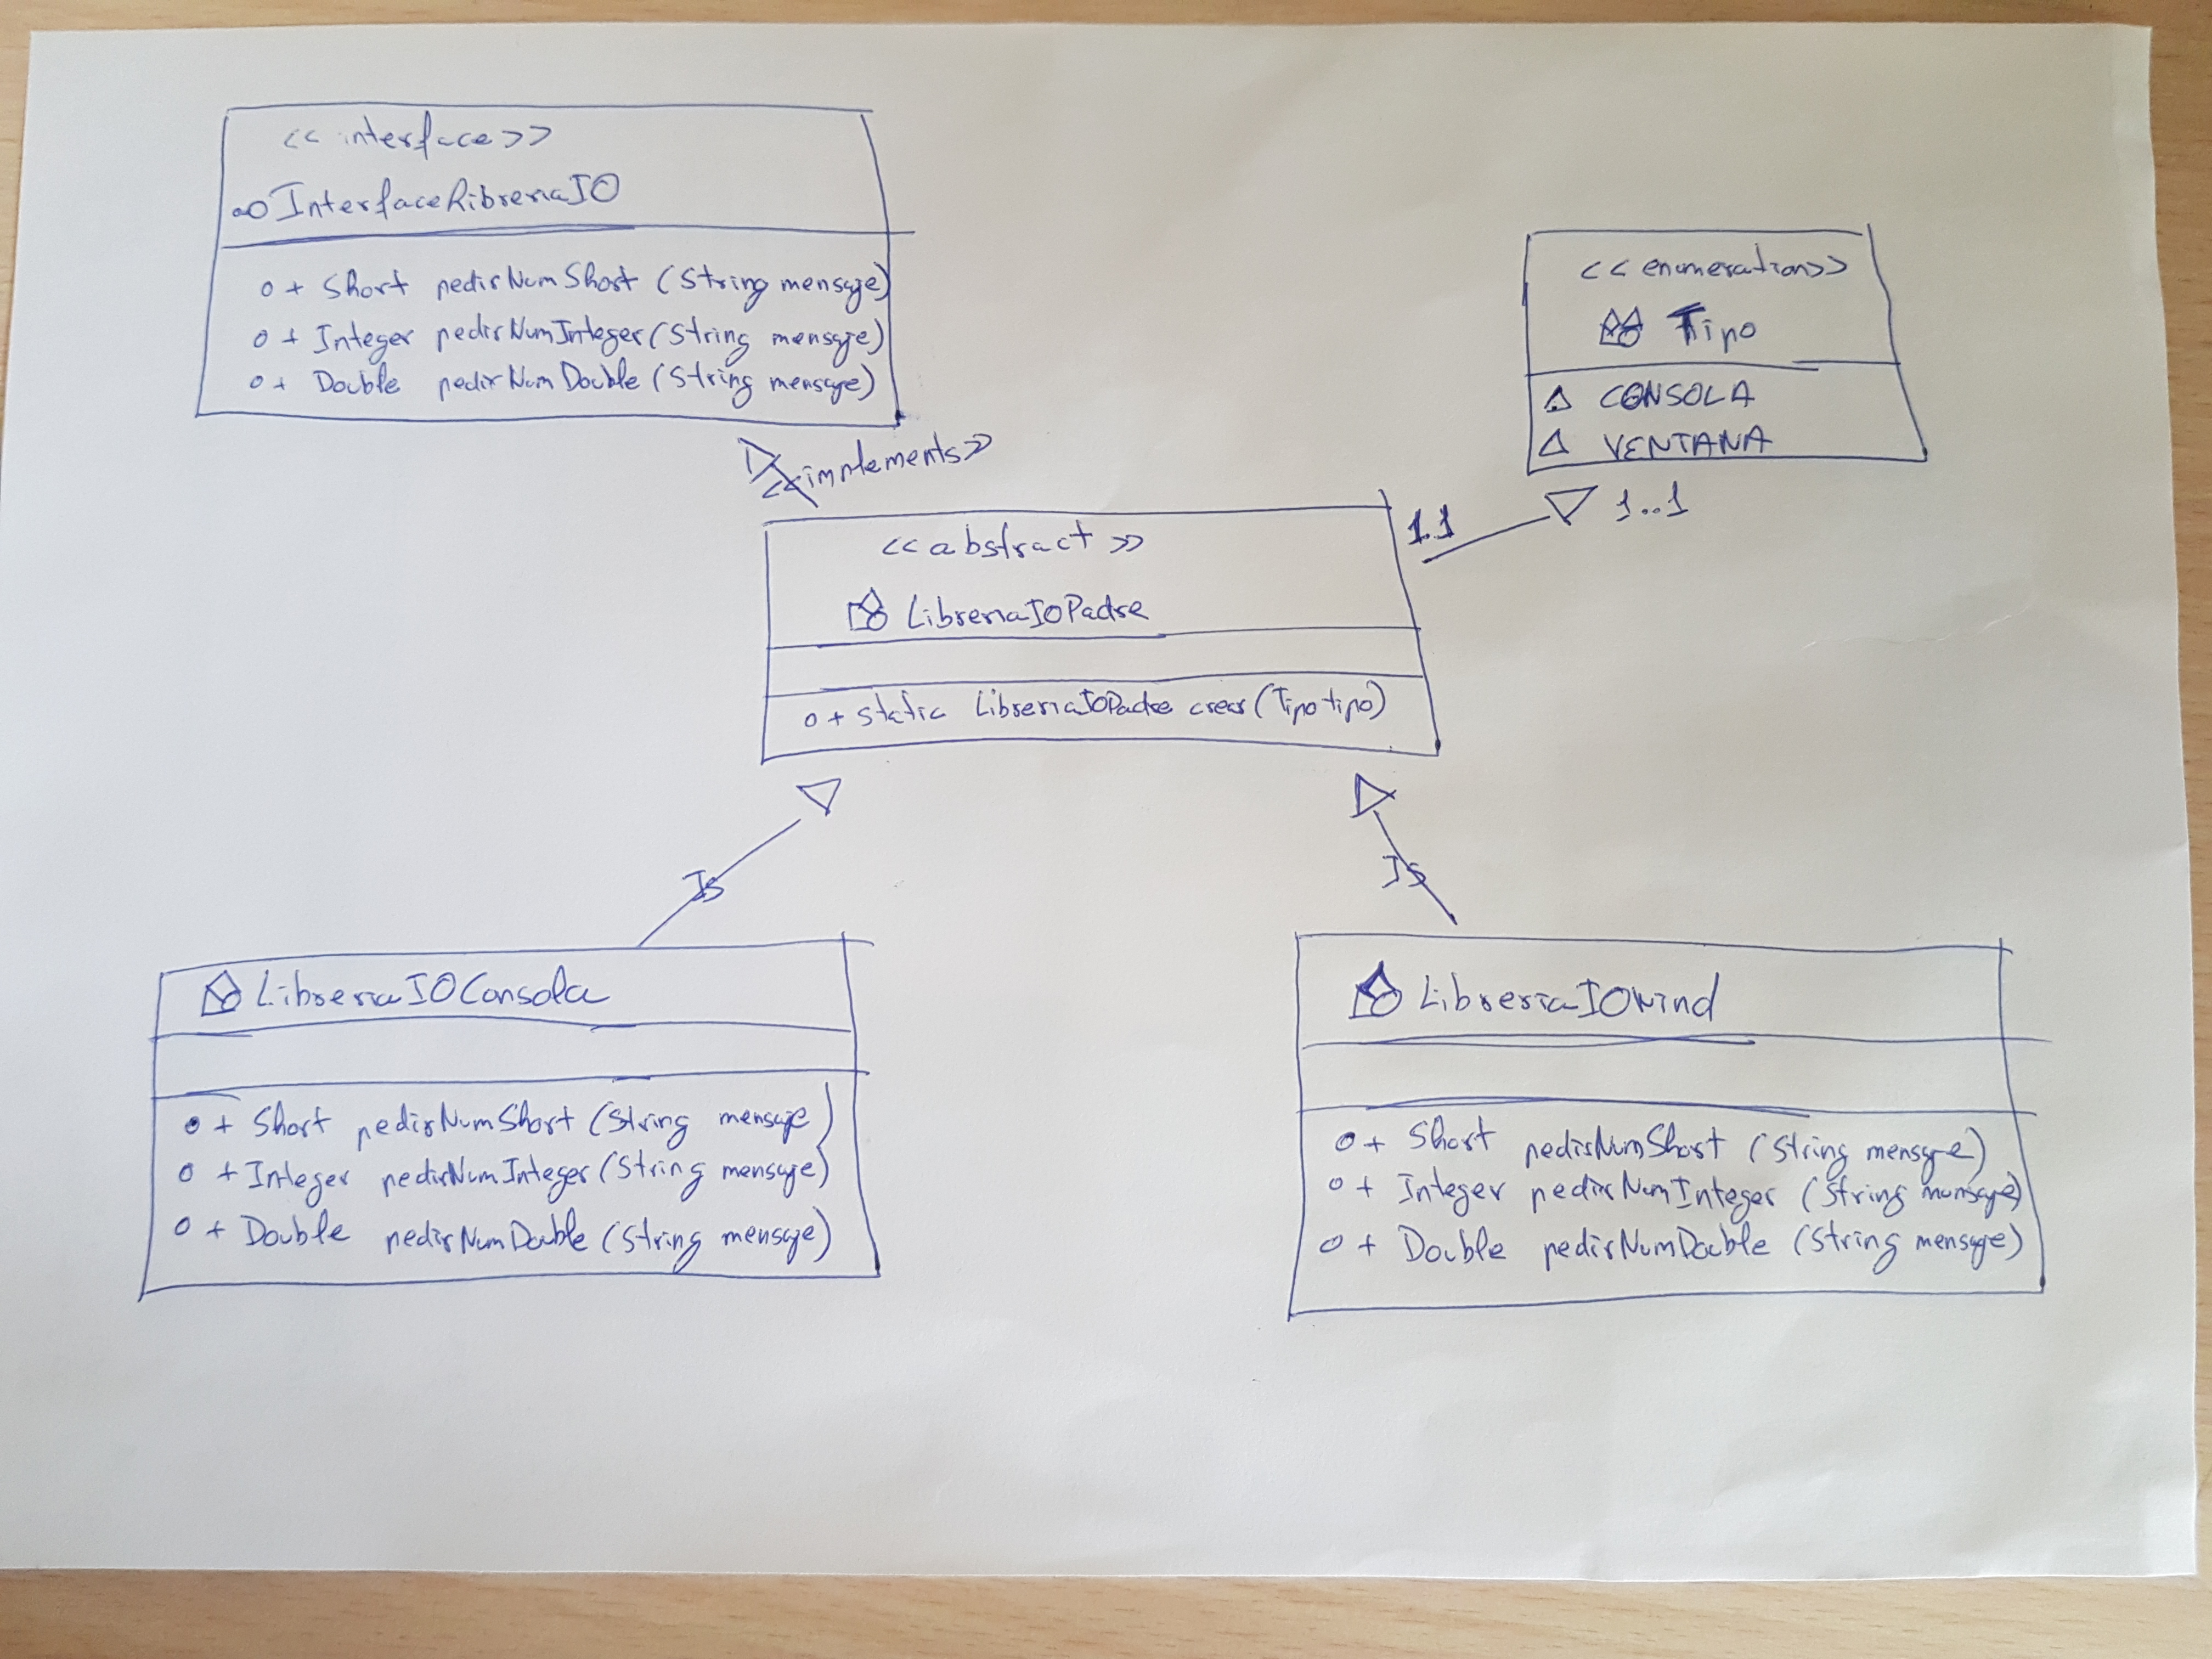 << interface >>
InterfaceLibreriaIO
o + Short pedirNumShort (String mensaje)
o + Integer pedirNumInteger (String mensaje)
o + Double pedirNumDouble (String mensaje)
<< enumeration >>
Tipo
CONSOLA
VENTANA
<<implements>>
1.1
1..1
<< abstract >>
LibreriaIOPadre
o + static LibreriaIOPadre crear (Tipo tipo)
Is
Is
LibreriaIOConsola
o + Short pedirNumShort (String mensaje)
o + Integer pedirNumInteger (String mensaje)
o + Double pedirNumDouble (String mensaje)
LibreriaIOWind
o + Short pedirNumShort (String mensaje)
o + Integer pedirNumInteger (String mensaje)
o + Double pedirNumDouble (String mensaje)